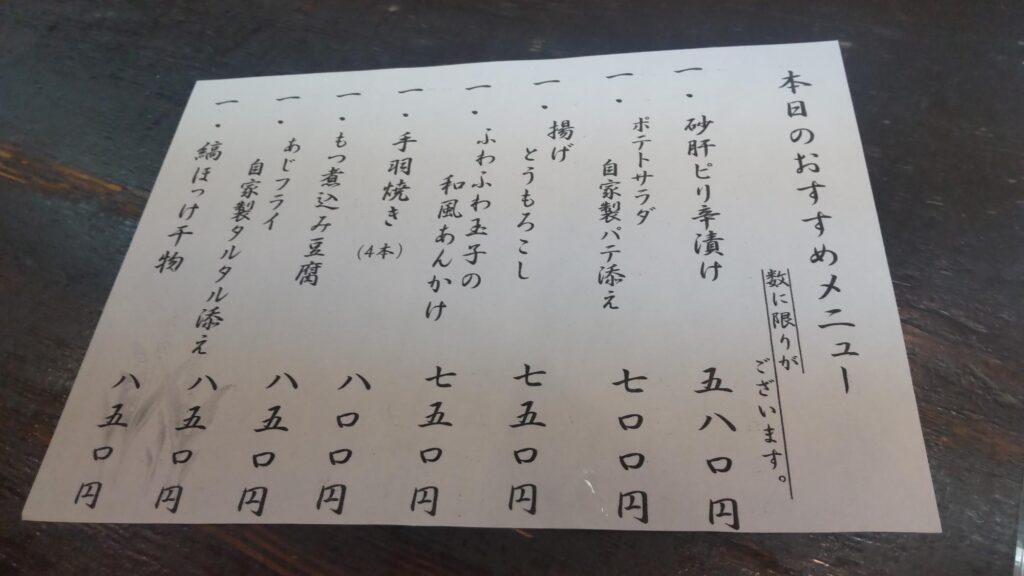 本日のおすすめメニュー
数に限りが
ございます。
一・砂肝ピリ辛漬け 五八〇円
一・ポテトサラダ
自家製パテ添え 七〇〇円
一・揚げ
とうもろこし 七五〇円
一・ふわふわ玉子の
和風あんかけ 七五〇円
一・手羽焼き(4本) 八〇〇円
一・もつ煮込み豆腐 八五〇円
一・あじフライ
自家製タルタル添え 八五〇円
一・縞ほっけ干物 八五〇円